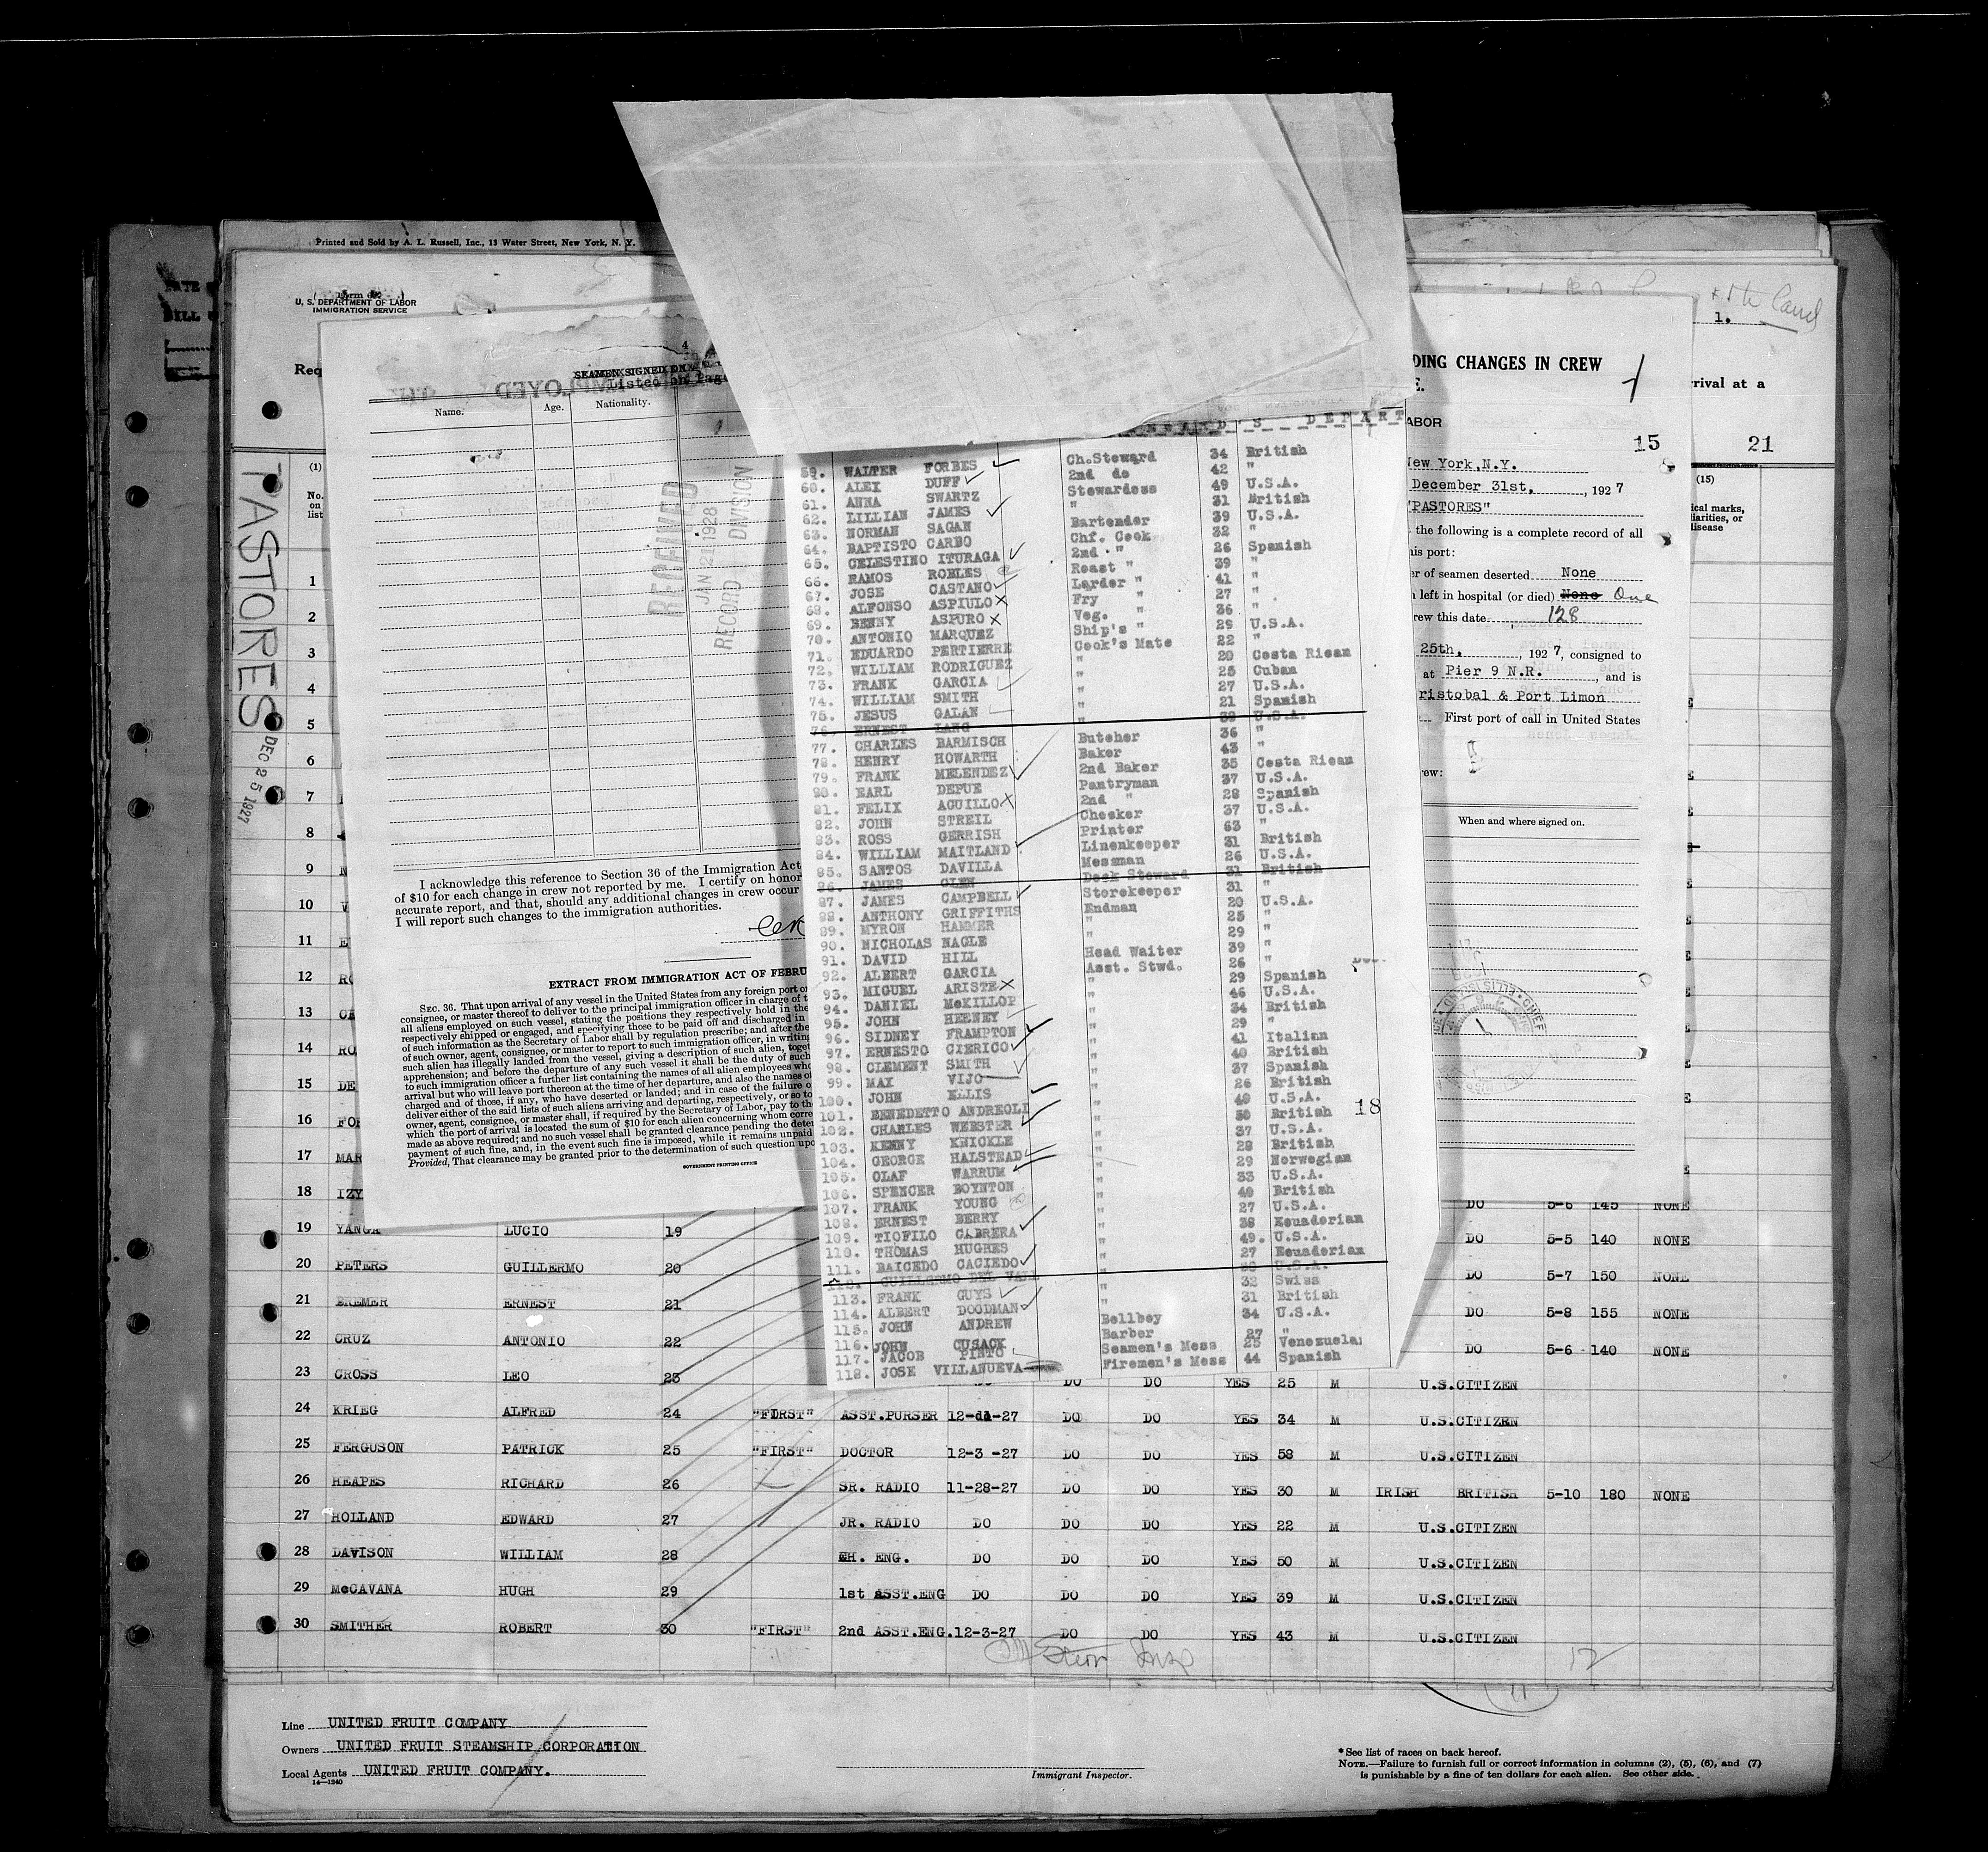 Printed and Sold by A. L. Russell, Inc., 13 Water Street, New York, N. Y.
U. S. DEPARTMENT OF LABOR
IMMIGRATION SERVICE
Req
PASTORES
DEC 25 1927
(1)
No.
on
list
4
SEAMEN SIGNED ON
Listed on Page
Name.
Age.
Nationality.
RECEIVED
JAN 2 1928
RECORD DIVISION
I acknowledge this reference to Section 36 of the Immigration Act
of $10 for each change in crew not reported by me. I certify on honor
accurate report, and that, should any additional changes in crew occur
I will report such changes to the immigration authorities.
EXTRACT FROM IMMIGRATION ACT OF FEBRU
SEC. 36. That upon arrival of any vessel in the United States from any foreign port or
consignee, or master thereof to deliver to the principal immigration officer in charge of t
all aliens employed on such vessel, stating the positions they respectively hold in the
respectively shipped or engaged, and specifying those to be paid off and discharged in
of such information as the Secretary of Labor shall by regulation prescribe; and after the
of such owner, agent, consignee, or master to report to such immigration officer, in writing
such alien has illegally landed from the vessel, giving a description of such alien, toget
apprehension; and before the departure of any such vessel it shall be the duty of such
to such immigration officer a further list containing the names of all alien employees who
arrival but who will leave port thereon at the time of her departure, and also the names of
charged and of those, if any, who have deserted or landed; and in case of the failure o
deliver either of the said lists of such aliens arriving and departing, respectively, or so to
owner, agent, consignee, or master shall, if required by the Secretary of Labor, pay to th
which the port of arrival is located the sum of $10 for each alien concerning whom corre
made as above required; and no such vessel shall be granted clearance pending the deter
payment of such fine, and, in the event such fine is imposed, while it remains unpaid
Provided, That clearance may be granted prior to the determination of such question upo
GOVERNMENT PRINTING OFFICE
D'S DEPART
59. WALTER FORBES Ch.Steward 34 British
60. ALEX DUFF 2nd do 42 "
61. ANNA SWARTZ Stewardess 49 U.S.A.
62. LILLIAN JAMES " 31 British
63. NORMAN SAGAN Bartender 39 U.S.A.
64. BAPTISTO CARBO Chf. Cook 32 "
65. CELESTINO ITURAGA 2nd " 26 Spanish
66. RAMOS ROBLES Roast " 39 "
67. JOSE CASTANO Larder " 41 "
68. ALFONSO ASPIULO Fry " 27 "
69. BENNY ASPURO Veg. " 36 "
70. ANTONIO MARQUEZ Ship's " 29 U.S.A.
71. EDUARDO PERTIERRE Cook's Mate 22 "
72. WILLIAM RODRIGUEZ " 20 Costa Rican
73. FRANK GARCIA " 25 Cuban
74. WILLIAM SMITH " 27 U.S.A.
75. JESUS GALAN " 21 Spanish
76. ERNEST LANG " 39 U.S.A.
77. CHARLES BARMISCH Butcher 36 "
78. HENRY HOWARTH Baker 43 "
79. FRANK MELENDEZ 2nd Baker 35 Costa Rican
80. EARL DEPUE Pantryman 37 U.S.A.
81. FELIX AGUILLO 2nd " 28 Spanish
82. JOHN STREIL Checker 37 U.S.A.
83. ROSS GERRISH Printer 63 "
84. WILLIAM MAITLAND Linenkeeper 31 British
85. SANTOS DAVILLA Messman 26 U.S.A.
86. JAMES GLEN Deck Steward 31 British
87. JAMES CAMPBELL Storekeeper 31 "
88. ANTHONY GRIFFITHS Endman 20 U.S.A.
89. MYRON HAMMER " 25 "
90. NICHOLAS NAGLE " 29 "
91. DAVID HILL Head Waiter 39 "
92. ALBERT GARCIA Asst. Stwd. 26 "
93. MIGUEL ARISTE " 29 Spanish
94. DANIEL McKILLOP " 46 U.S.A.
95. JOHN HEENEY " 34 British
96. SIDNEY FRAMPTON " 29 "
97. ERNESTO CIERICO " 41 Italian
98. CLEMENT SMITH " 40 British
99. MAX VIJO " 37 Spanish
100. JOHN ELLIS " 26 British
101. BENEDETTO ANDREOLI " 49 U.S.A.
102. CHARLES WEBSTER " 50 British
103. KENNY KNICKLE " 37 U.S.A.
104. GEORGE HALSTEAD " 28 British
105. OLAF WARRUM " 29 Norwegian
106. SPENCER BOYNTON " 33 U.S.A.
107. FRANK YOUNG " 40 British
108. ERNEST BERRY " 27 U.S.A.
109. TIOFILO CABRERA " 38 Ecuadorian
110. THOMAS HUGHES " 49. U.S.A.
111. BAICEDO CACIEDO " 27 Ecuadorian
112. GUILLERMO DEL VALL U.S.A.
113. FRANK GUYS " 32 Swiss
114. ALBERT DOODMAN " 31 British
115. JOHN ANDREW Bellboy 34 U.S.A.
116. JOHN CUSACK Barber 27 "
117. JACOB PINTO Seamen's Mess 25 Venezuela
118. JOSE VILLANUEVA Firemen's Mess 44 Spanish
18
DING CHANGES IN CREW
E.
ABOR
15
New York, N.Y.
December 31st, , 1927
"PASTORES"
the following is a complete record of all
his port:
er of seamen deserted None
left in hospital (or died) None One
rew this date 128
25th, , 1927, consigned to
at Pier 9 N.R. , and is
ristobal & Port Limon
First port of call in United States
rew:
When and where signed on.
1.
rrival at a
21
(15)
ical marks,
liarities, or
disease
1
2
3
4
5
6
7
8
9
10
11
12
13
14
15
16
17 MAR
18 IZY DO 5-6 145 NONE
19 YANGA LUCIO 19 DO 5-5 140 NONE
20 PETERS GUILLERMO 20 DO 5-7 150 NONE
21 BREMER ERNEST 21 DO 5-8 155 NONE
22 CRUZ ANTONIO 22 DO 5-6 140 NONE
23 CROSS LEO 23 DO DO YES 25 M U.S.CITIZEN
24 KRIEG ALFRED 24 "FIRST" ASST.PURSER 12-dd-27 DO DO YES 34 M U.S.CITIZEN
25 FERGUSON PATRICK 25 "FIRST" DOCTOR 12-3 -27 DO DO YES 58 M U.S.CITIZEN
26 HEAPES RICHARD 26 SR. RADIO 11-28-27 DO DO YES 30 M IRISH BRITISH 5-10 180 NONE
27 HOLLAND EDWARD 27 JR. RADIO DO DO DO YES 22 M U.S.CITIZEN
28 DAVISON WILLIAM 28 CH. ENG. DO DO DO YES 50 M U.S.CITIZEN
29 McCAVANA HUGH 29 1st ASST.ENG DO DO DO YES 39 M U.S.CITIZEN
30 SMITHER ROBERT 30 "FIRST" 2nd ASST.ENG. 12-3-27 DO DO YES 43 M U.S.CITIZEN
Line UNITED FRUIT COMPANY
Owners UNITED FRUIT STEAMSHIP CORPORATION
Local Agents UNITED FRUIT COMPANY.
14—1240
Immigrant Inspector.
* See list of races on back hereof.
NOTE.—Failure to furnish full or correct information in columns (2), (5), (6), and (7)
is punishable by a fine of ten dollars for each alien. See other side.